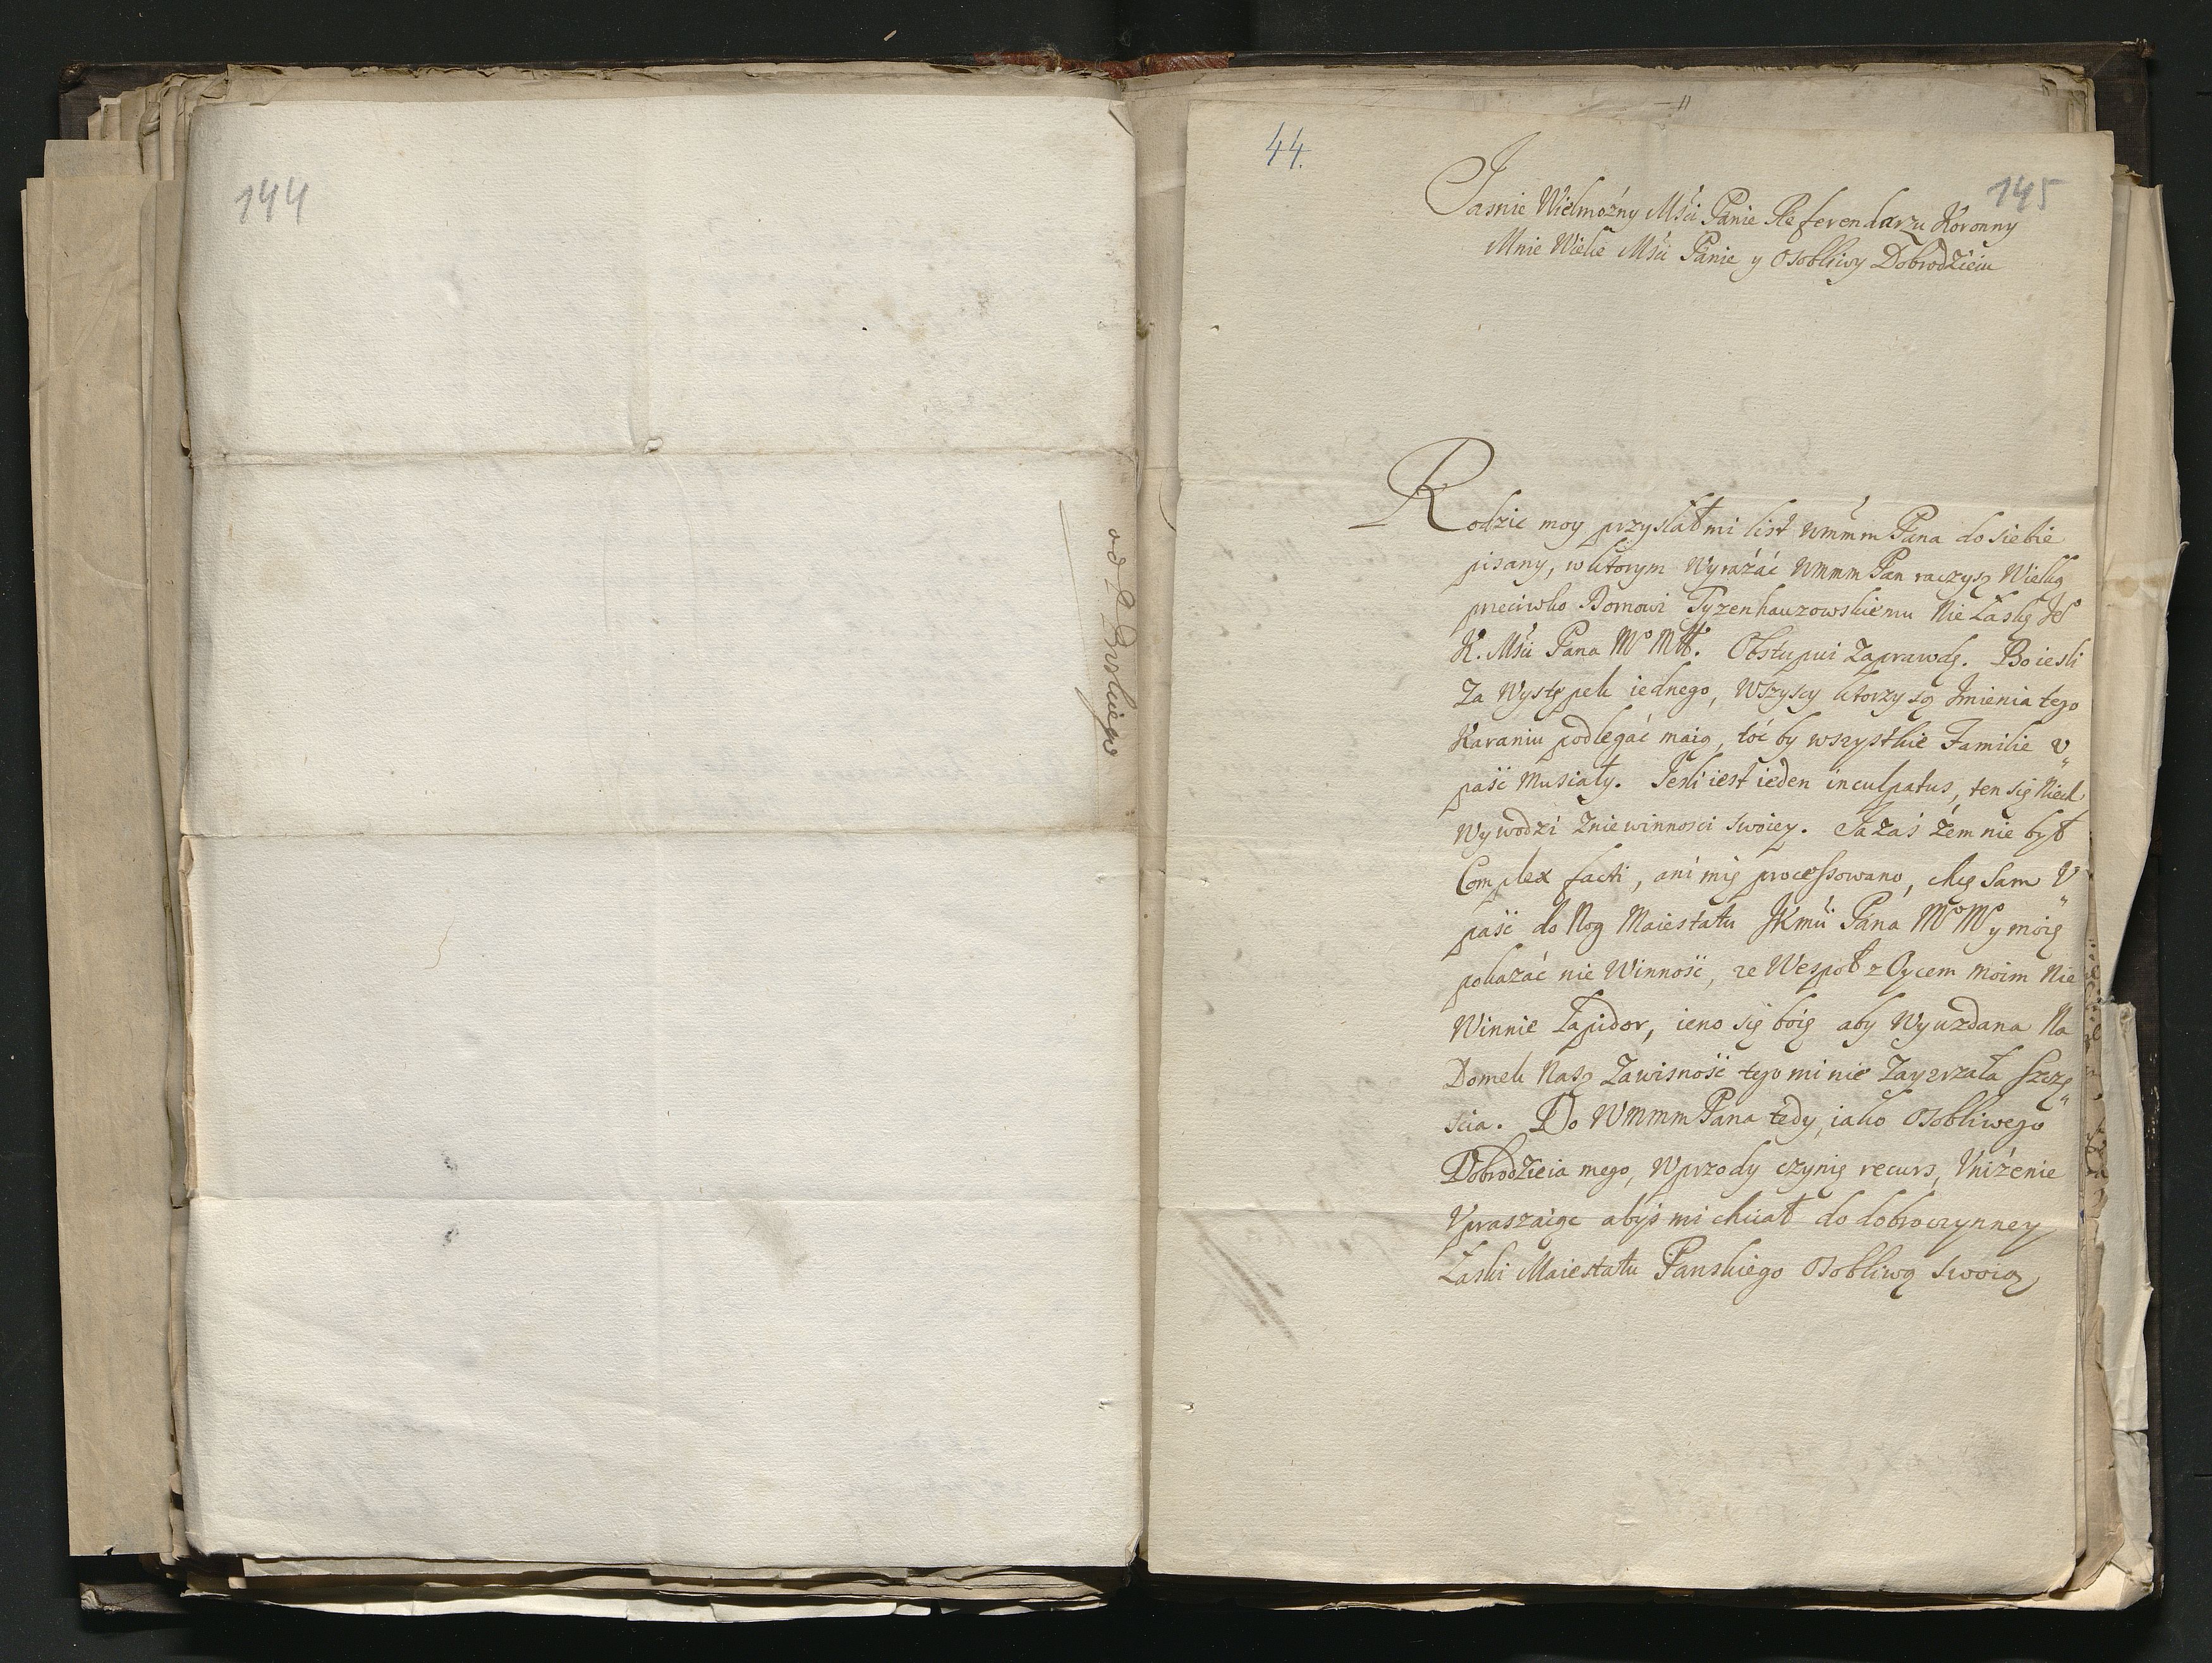 144
od P Duskiego
44.
145
Jasnie Wielmożny Mści Panie Referendarzu Koronny
Mnie Wielce Mści Panie y Osobliwy Dobrodzieiu
Rodzic moy przysłał mi list Wmmm Pana do siebie
pisany, w ktorym Wyrażać Wmmm Pan raczysz Wielką
przeciwko Domowi Tyzenhauzowskiemu Nie Łaskę Je°
K. Mści Pana M° Mł°. Obstupui Zaprawdę. Bo iesli
Za Występek iednego, Wszyscy ktorzy są Jmienia tego
Karaniu podlegać maią, toć by wszystkie Familie v„
paść Musiały. Jesli iest ieden inculpatus, ten się Niech
Wywodzi Zniewinnosci swoiey. Ja Zaś Żem nie był
Complex facti, ani mię processowano, chcę Sam V„
paść do Nog Maiestatu JKmści Pana M° M° y moię
pokazać nie Winność, ze Wespoł z Oycem moim Nie
Winnie Lapidor, ieno się boię aby Wyuzdana Na
Domek Nasz Zawisność tego mi nie Zayzrzała Szczę„
scia. Do Wmmm Pana tedy, iako Osobliwego
Dobrodzieia mego, Wprzody czynię recurs, Vniżenie
Vpraszaiąc abyś mi chciał do dobroczynney
Łaski Maiestatu Panskiego Osobliwą swoią